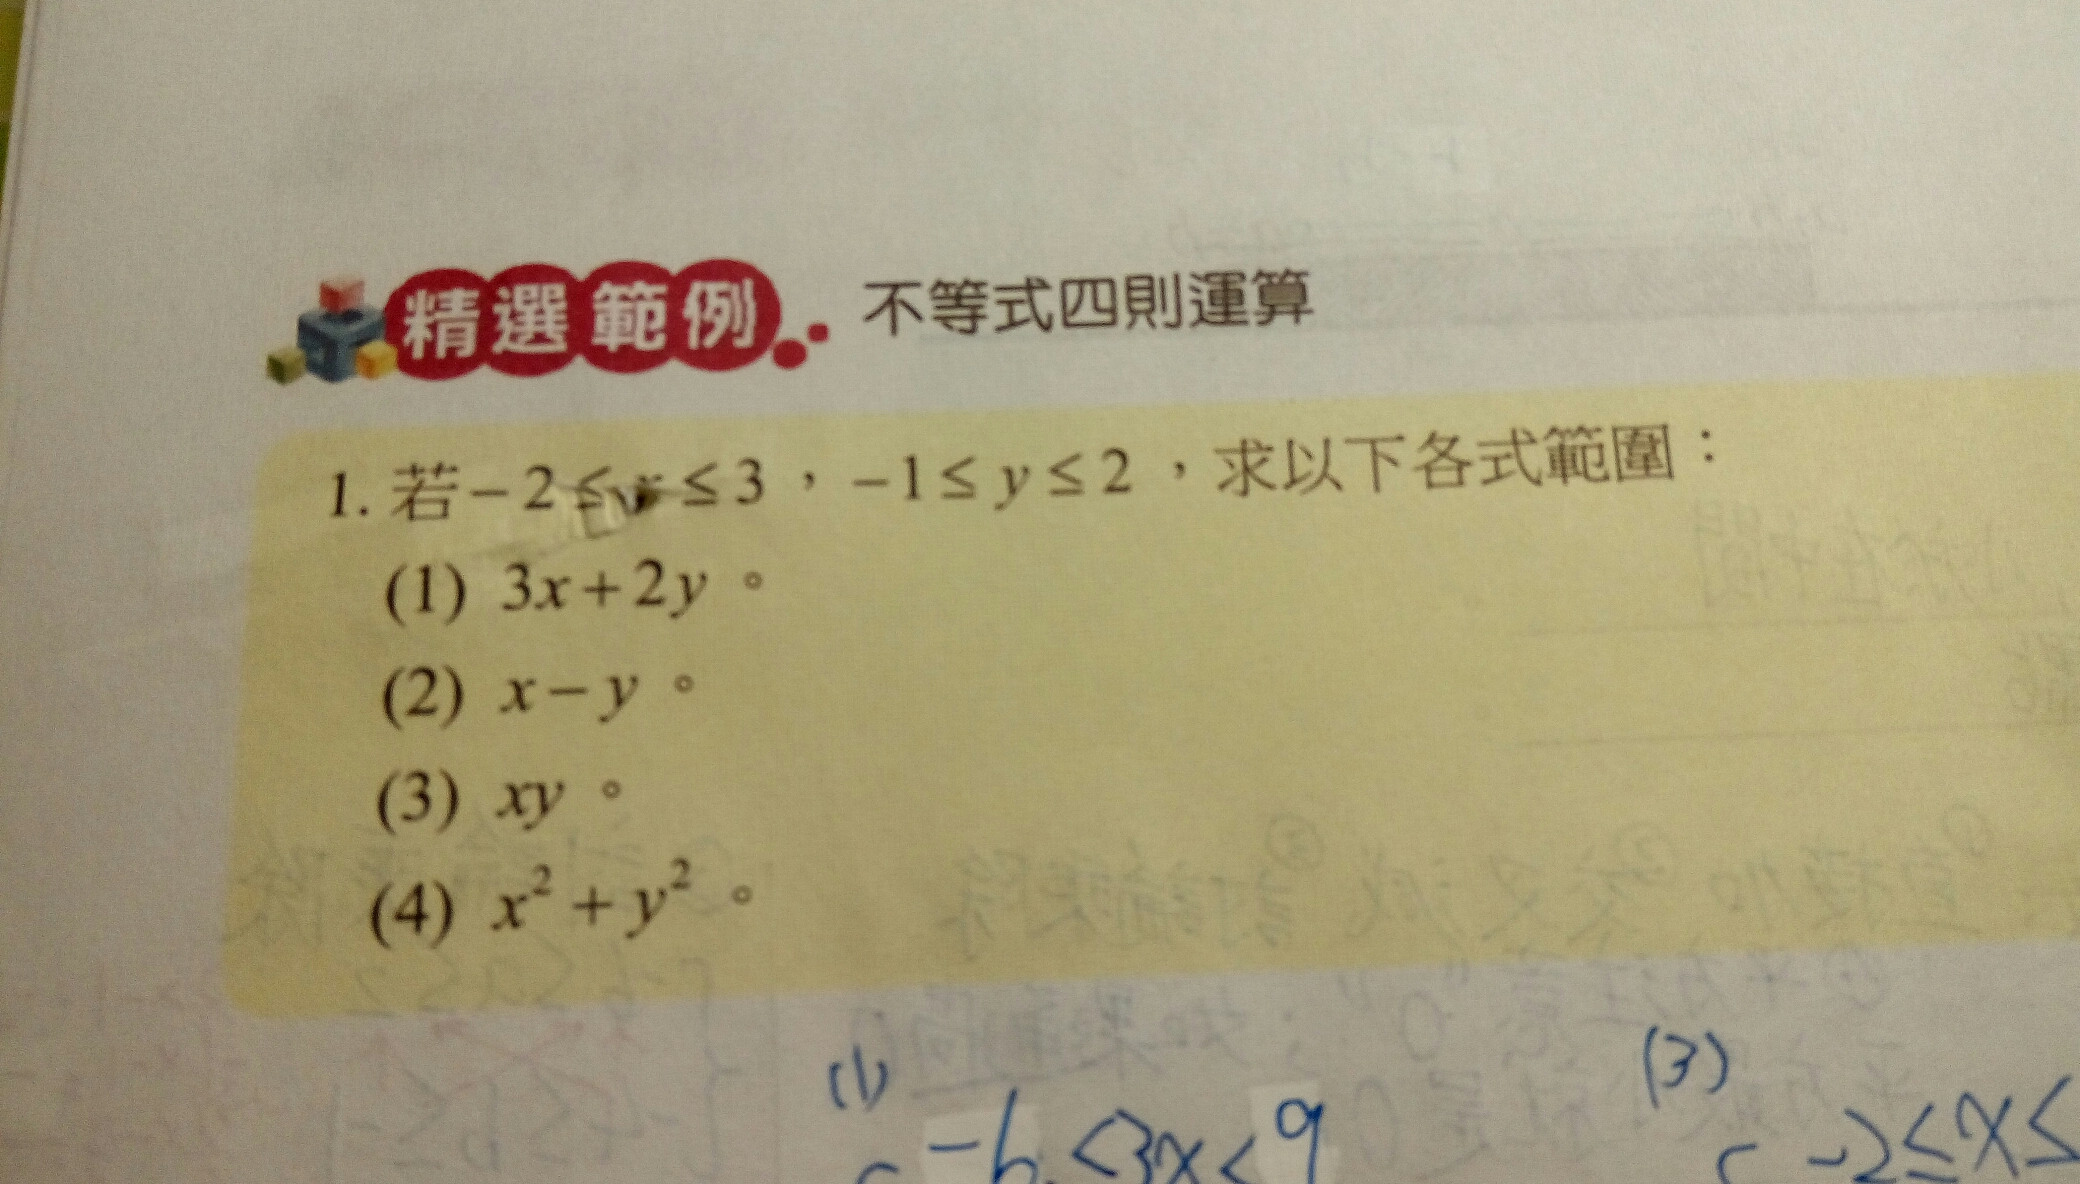 精選範例 不等式四則運算
1. 若 −2 ≤ x ≤ 3，−1 ≤ y ≤ 2，求以下各式範圍：
(1) 3x+2y。
(2) x−y。
(3) xy。
(4) x²+y²。
(1) (3)
-6<3x<9 -2≤x≤